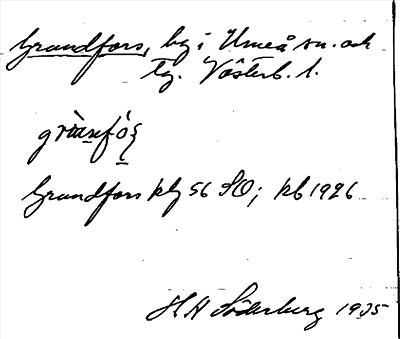 Grundfors, by i Umeå sn. och
tg. Västerb. l.
Grundfors kbg 56 SO; kb 1926
H H Söderberg 1935